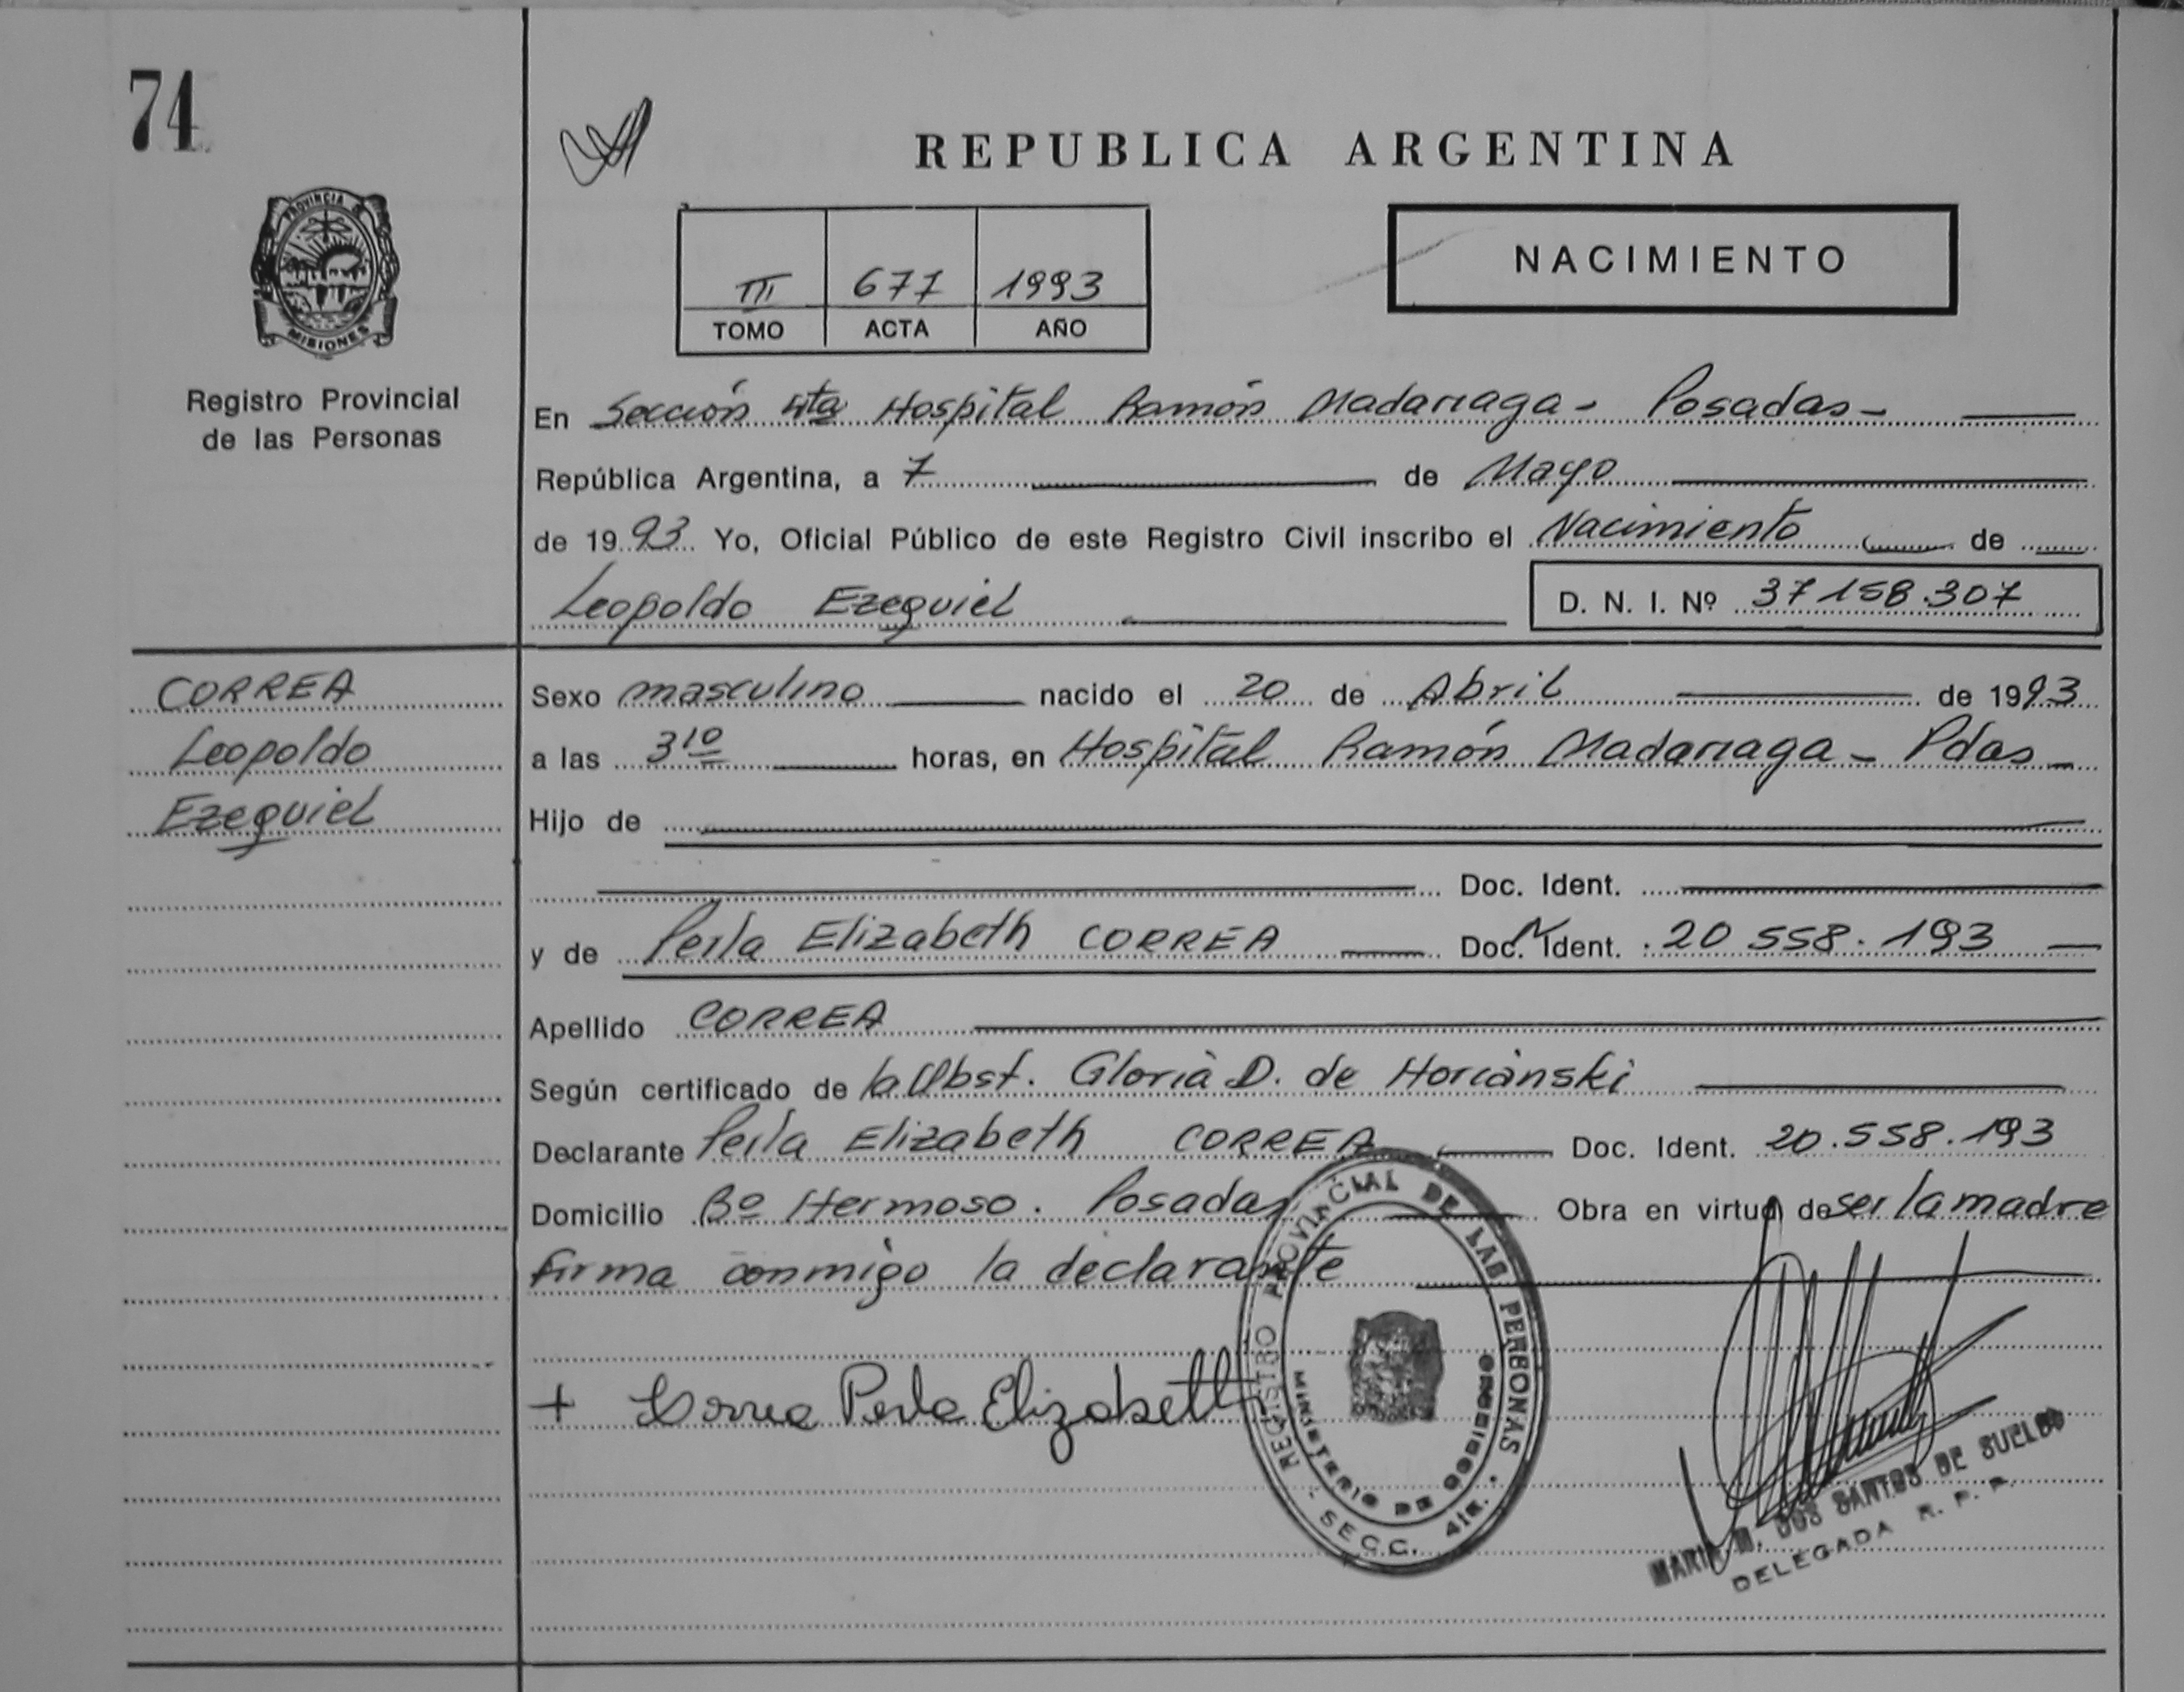 74
REPUBLICA ARGENTINA
PROVINCIA DE
MISIONES
Registro Provincial
de las Personas
III 677 1993
TOMO ACTA AÑO
NACIMIENTO
En Sección 4ta Hospital Ramón Madariaga - Posadas -
República Argentina, a 7 de Mayo
de 1993 Yo, Oficial Público de este Registro Civil inscribo el Nacimiento de
Leopoldo Ezequiel D. N. I. Nº 37158.307
CORREA
Leopoldo
Ezequiel
Sexo masculino nacido el 20 de Abril de 1993
a las 3 10 horas, en Hospital Ramón Madariaga - Pdas -
Hijo de
Doc. Ident.
y de Perla Elizabeth CORREA Doc. Ident. 20.558.193
Apellido CORREA
Según certificado de la Obst. Gloria D. de Horianski
Declarante Perla Elizabeth CORREA Doc. Ident. 20.558.193
Domicilio Bº Hermoso. Posadas Obra en virtud de ser la madre
firma conmigo la declarante
+ Correa Perla Elizabeth
REGISTRO PROVINCIAL DE LAS PERSONAS
MINISTERIO DE GOBIERNO
SECC. 4ta.
MARIA M. DOS SANTOS DE SUELDO
DELEGADA R. P. P.